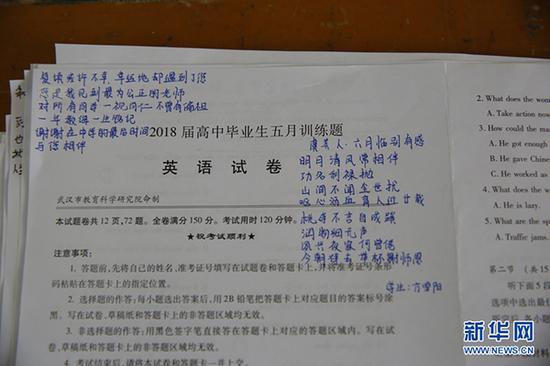 复读或许不幸,幸运地却遇到了您
您是我见到最为公正的老师
对所有同学一视同仁 不曾有偏袒
一年教侮一生铭记
谢谢在中学的最后时间
与您相伴
2018 届高中毕业生五月训练题
英 语 试 卷
武汉市教育科学研究院命制
本试题卷共 12 页,72 题。全卷满分 150 分。考试用时 120 分钟。
★祝考试顺利★
注意事项:
1. 答题前,先将自己的姓名、准考证号填写在试题卷和答题卡上,并将准考证号条形
码粘贴在答题卡上的指定位置。
2. 选择题的作答:每小题选出答案后,用 2B 铅笔把答题卡上对应题目的答案标号涂
黑。写在试卷、草稿纸和答题卡上的非答题区域均无效。
3. 非选择题的作答:用黑色签字笔直接答在答题卡上对应的答题区域内。写在试
卷、草稿纸和答题卡上的非答题区域均无效。
4. 考试结束后,请将本试卷和答题卡一并上交。
虞美人·六月临别有感
明月清风常相伴
功名利禄抛
山间不闻尘世扰
呕心沥血育人过廿载
桃李不言自成蹊
润物细无声
夙兴夜寐何曾倦
今朝 谢师恩
学生:方
2. What does the wom
A. Try again
3. How could the man
A. He got enough
B. He gave Chine
C. He worked as
4. What does
A. He is lazy.
5. What are the sp
A. Traffic jams.
第二节 (共 15
听下面 5 段
选项中选出最佳
新华网
WWW.NEWS.CN